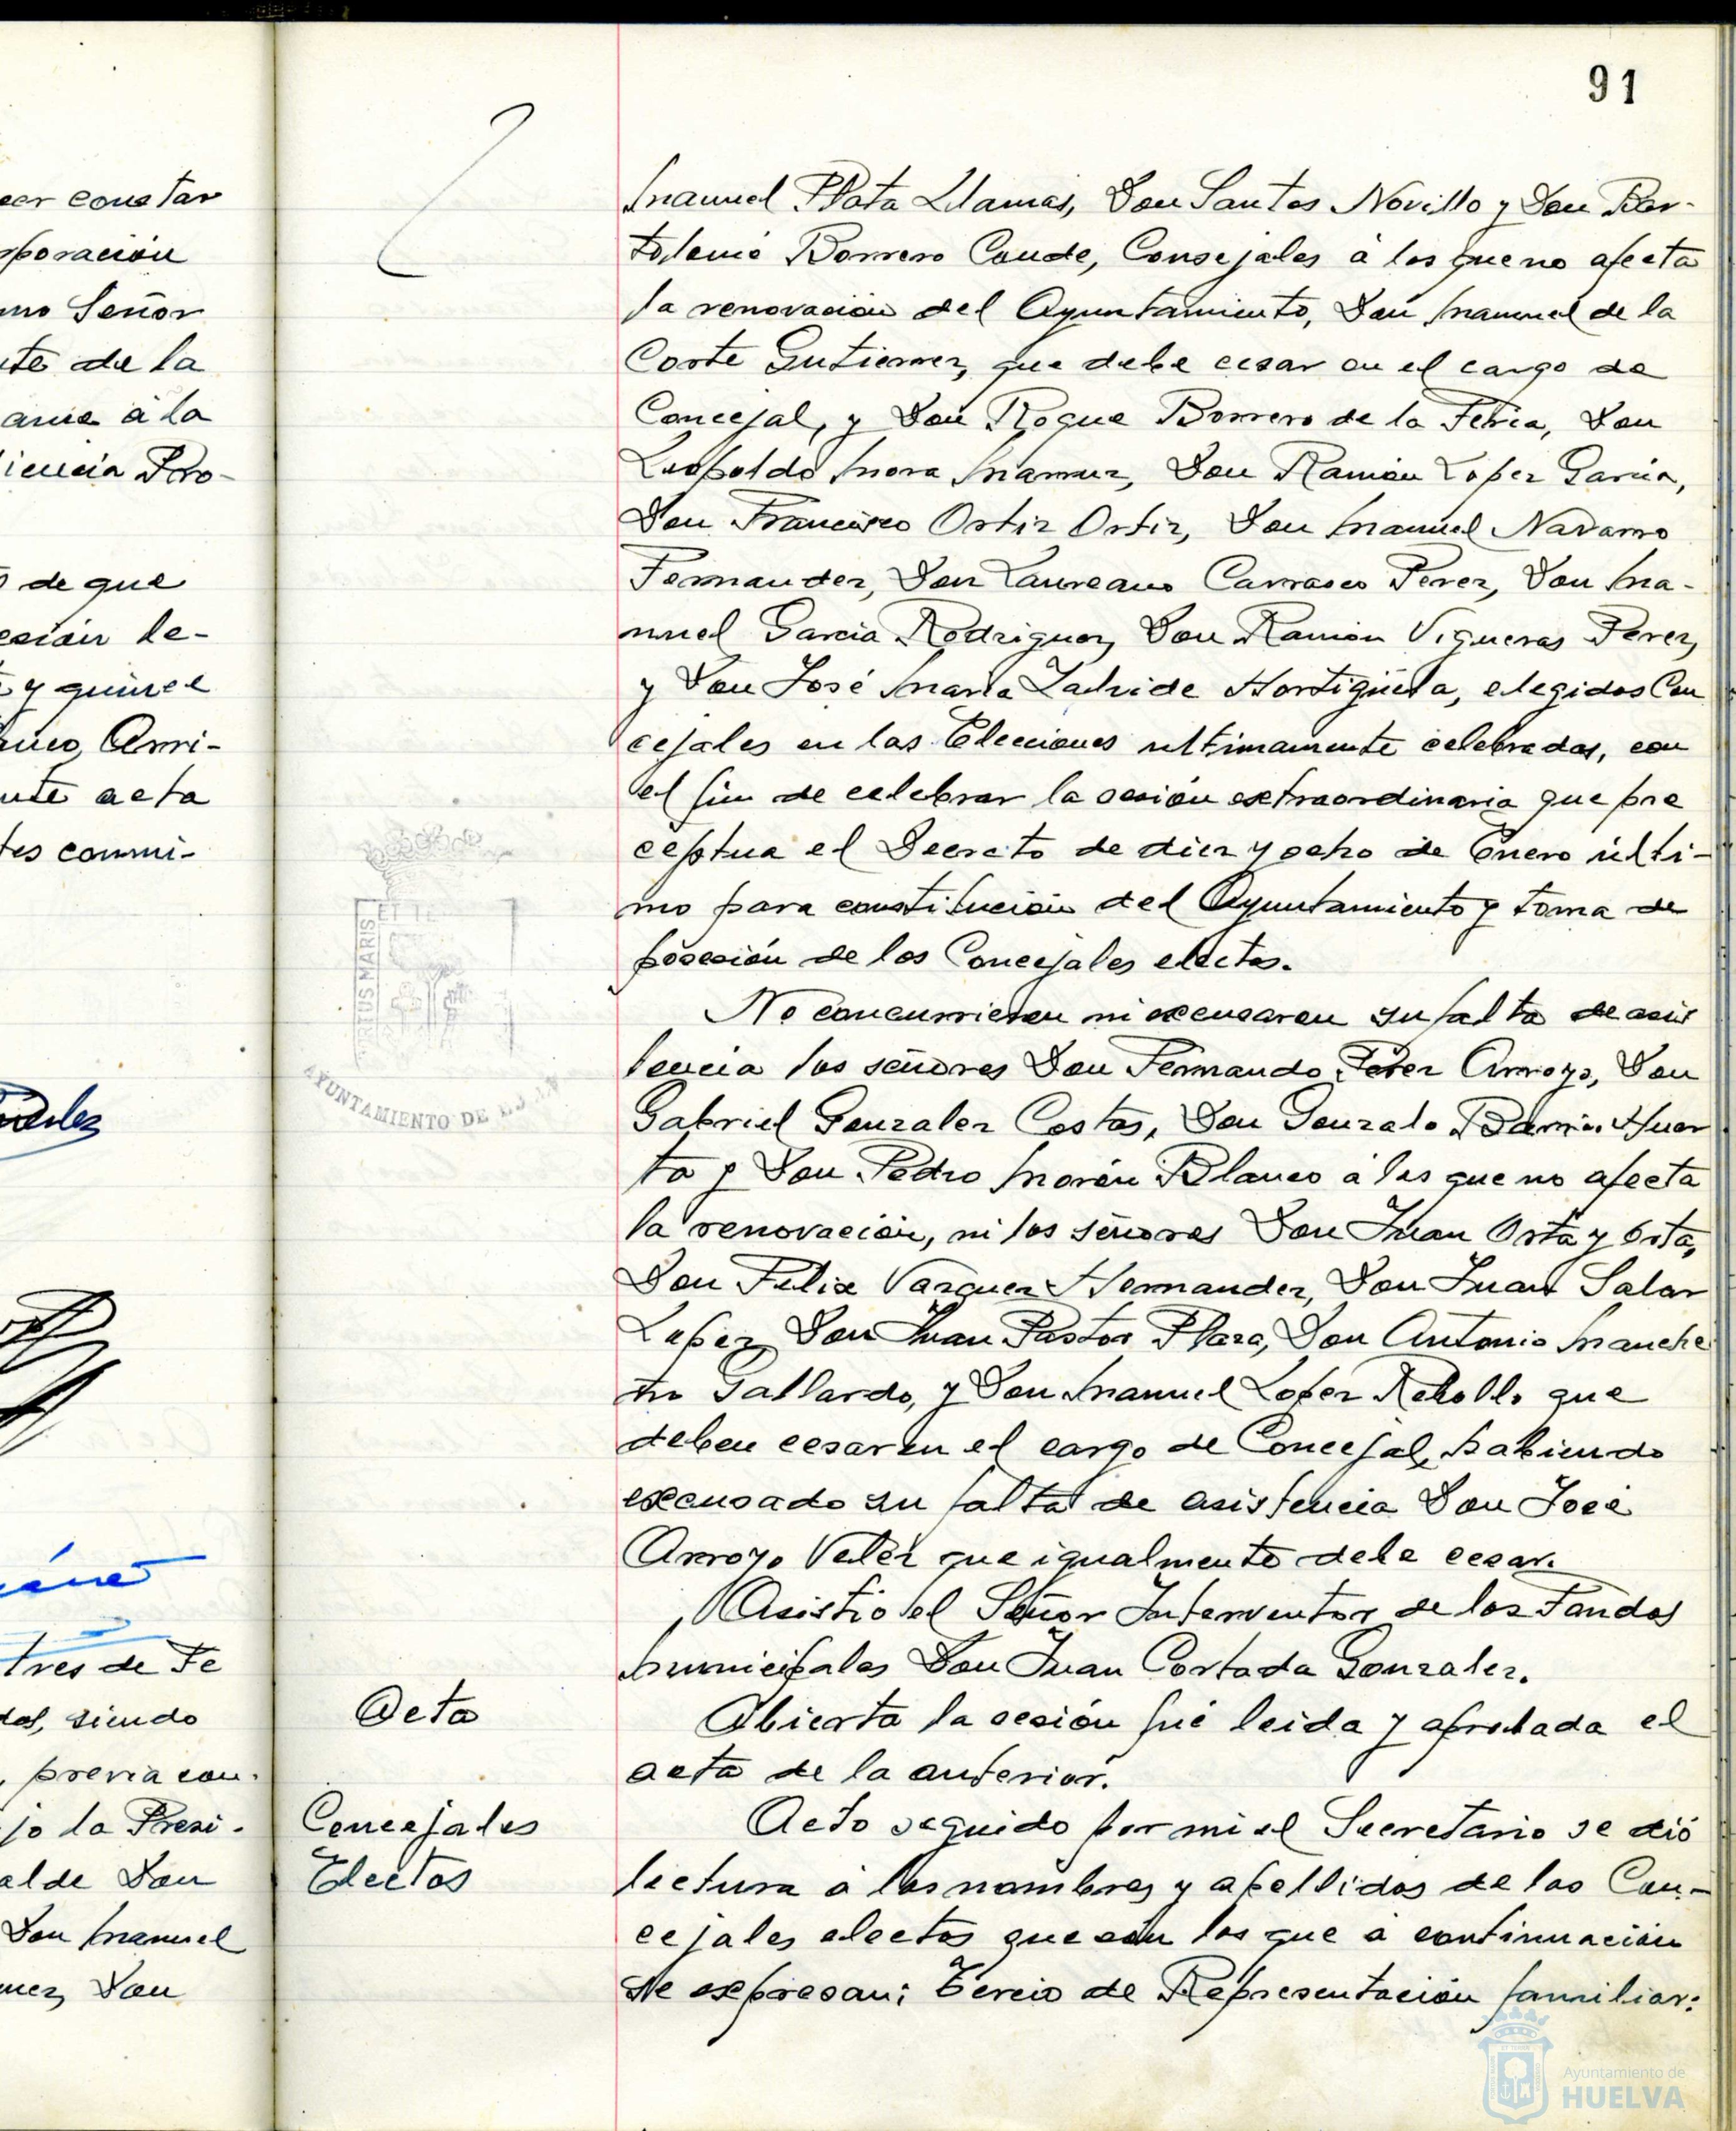 91
eer constar
rporación
mo Señor
nte de la
ame á la
iencia Pro-
de que
esión le-
y quince
Arri-
nte acta
tes conmi-
tres de Fe
dos, siendo
, previa con-
jo la Presi-
alde Don
Don Manuel
nez, Don
Acta
Concejales
Electos
Manuel Plata Llamas, Don Santos Novillo y Don Bar-
tolomé Borrero Conde, Consejales á los que no afecta
la renovación del Ayuntamiento, Don Manuel de la
Corte Gutierrez, que debe cesar en el cargo de
Concejal, y Don Roque Borrero de la Feria, Don
Leopoldo Mora Don Ramón Lopez Garcia,
Don Francisco Ortiz Ortiz, Don Manuel Navarro
Fernandez, Don Laureano Carrasco Perez, Don Ma-
nuel Garcia Rodriguez, Don Ramón Vigueras Perez,
y Don José Maria Hortigüela, elegidos Con
cejales en las Elecciones ultimamente celebradas, con
el fin de celebrar la sesión extraordinaria que pre
ceptua el Decreto de diez y ocho de Enero últi-
mo para constitución del Ayuntamiento y toma de
posesión de los Concejales electos.
No concurrieron ni excusaron su falta de asis
tencia los señores Don Fernando Perez Arroyo, Don
Gabriel Gonzalez Costas, Don Gonzalo Barrios Huer
ta y Don Pedro Morón Blanco á los que no afecta
la renovación, ni los señores Don Juan Orta y Orta,
Don Felix Vazquez Hernandez, Don Juan Salar
Lopez, Don Juan Pastor Plaza, Don Antonio Manche
Gallardo, y Don Manuel Lopez Rebollo que
deben cesar en el cargo de Concejal, habiendo
excusado su falta de asistencia Don José
Arroyo Velez que igualmente debe cesar.
Asistió el Señor Interventor de los Fondos
Municipales Don Juan Cortada Gonzalez.
Abierta la sesión fué leida y aprobada el
acta de la anterior.
Acto seguido por mi el Secretario se dió
lectura a los nombres y apellidos de los Con-
cejales electos que són los que á continuación
se expresan; Tercio de Representación familiar:
PORTUS MARIS
AYUNTAMIENTO DE
Ayuntamiento de
HUELVA